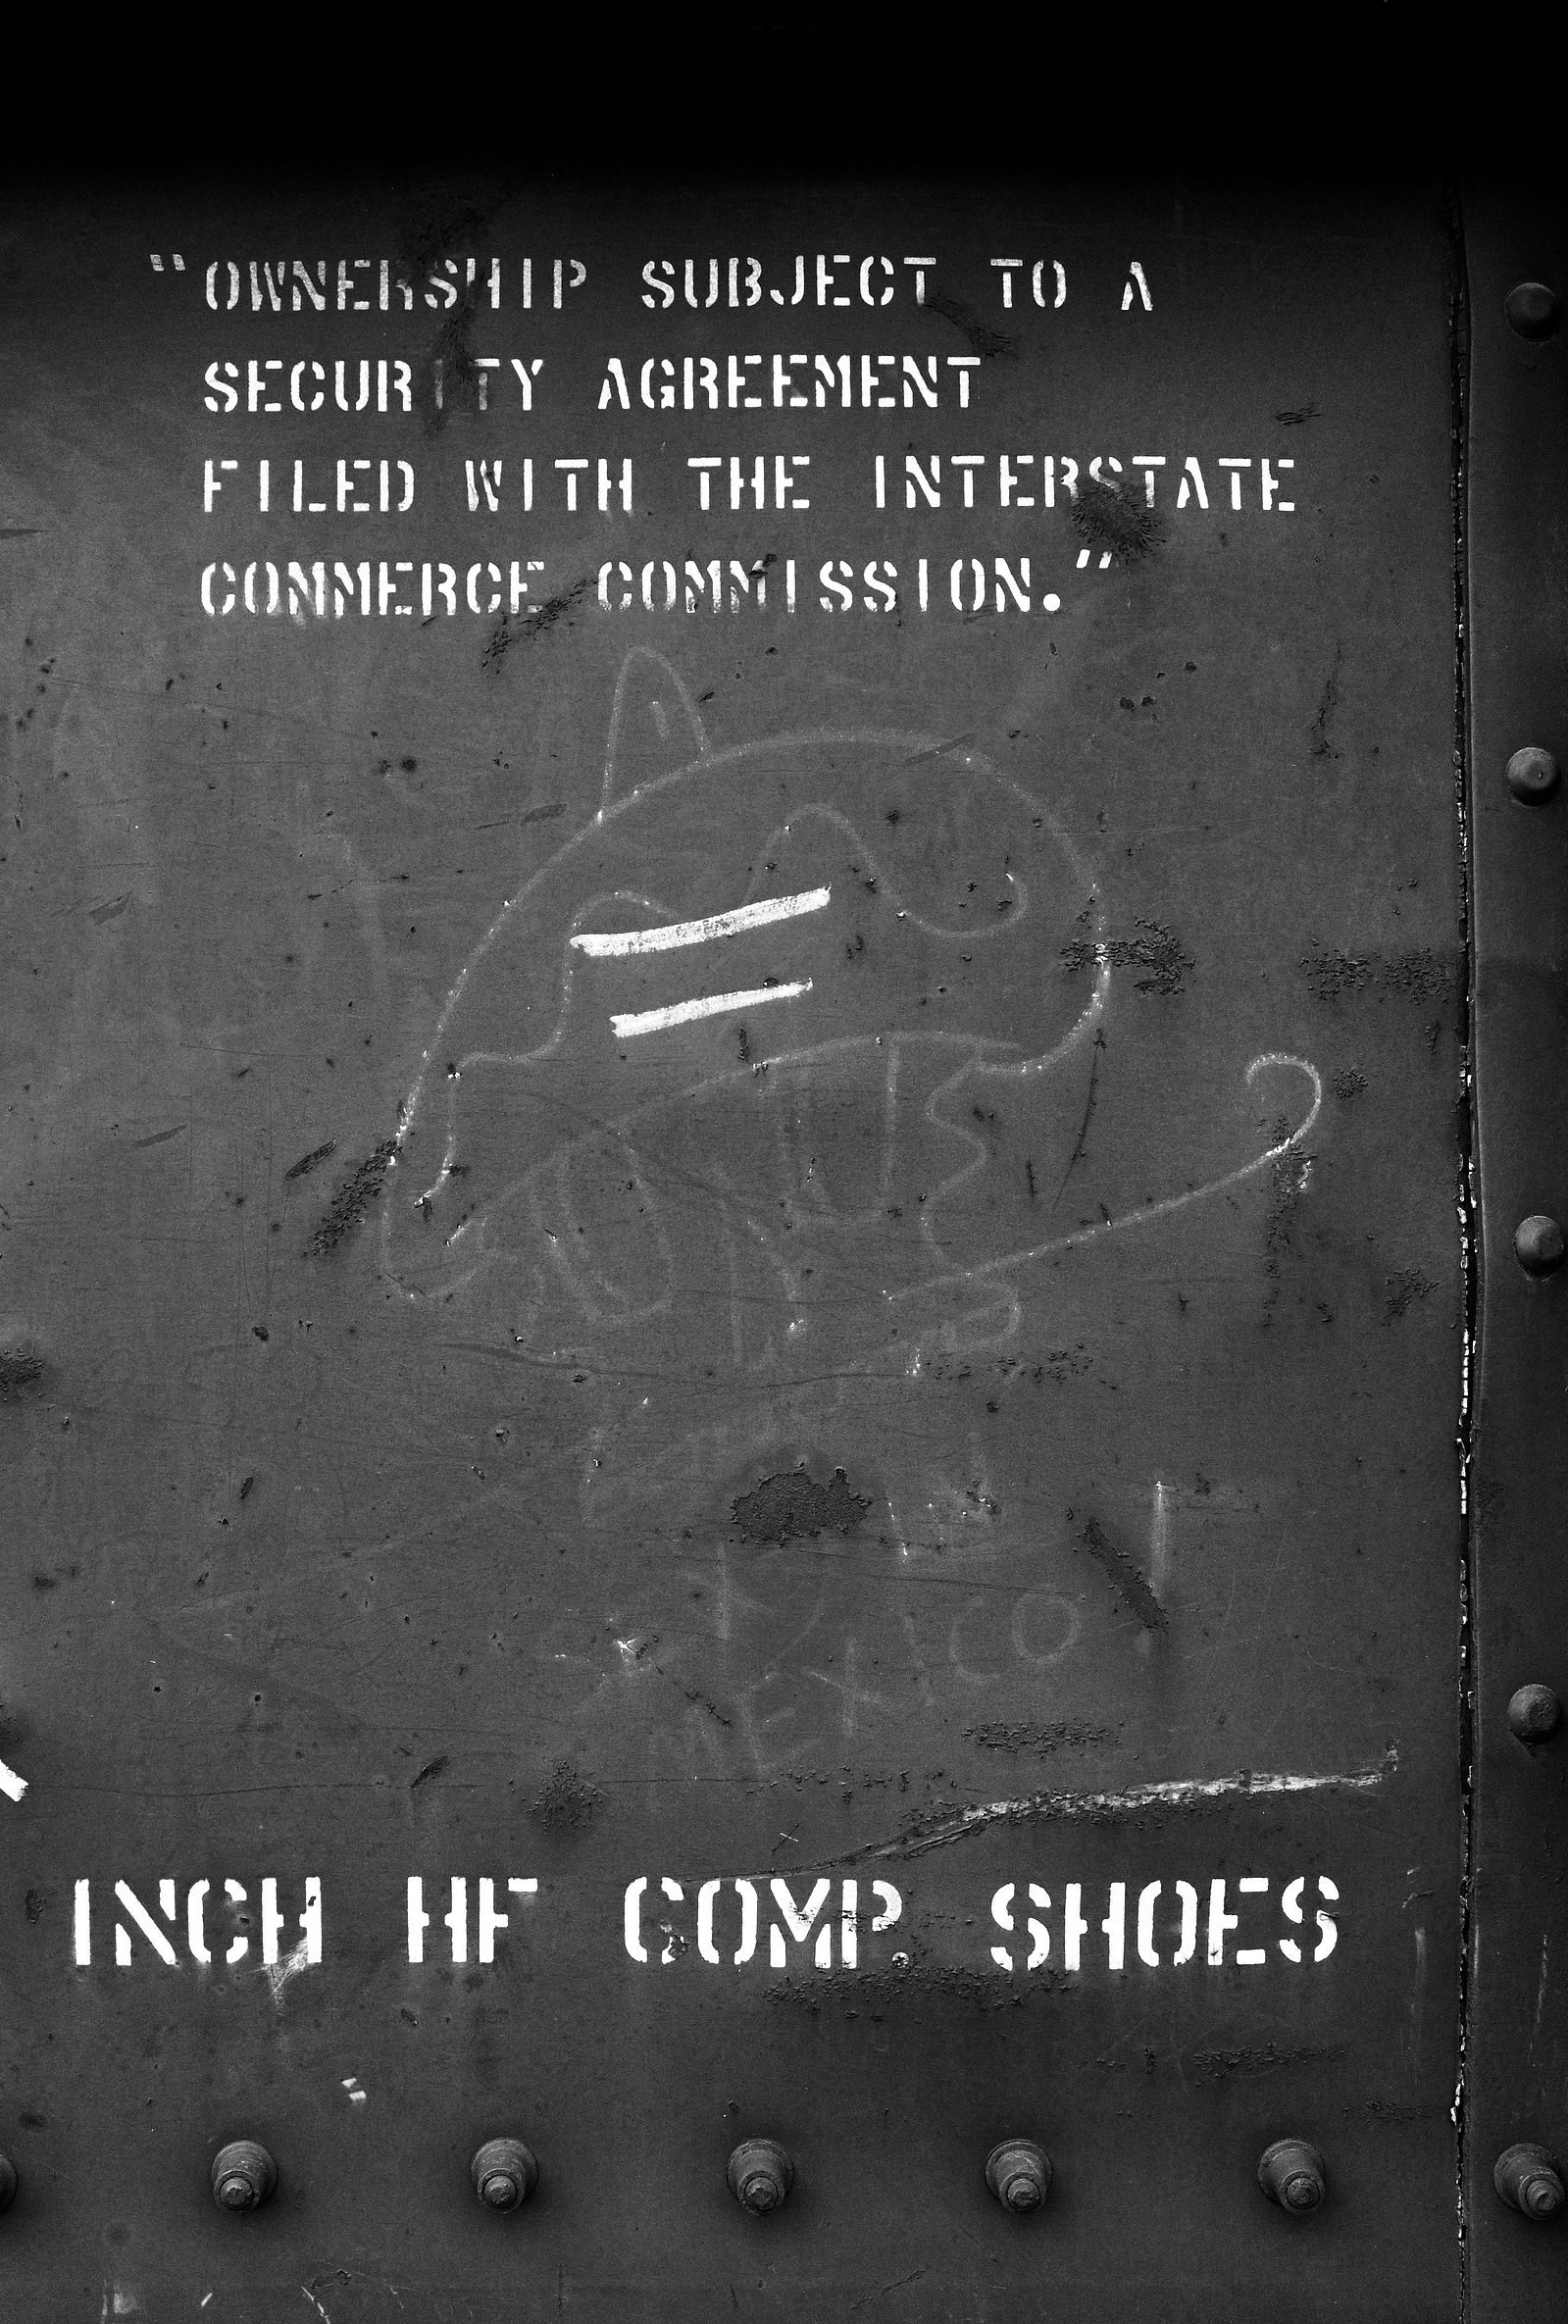 "OWNERSHIP SUBJECT TO A
SECURITY AGREEMENT
FILED WITH THE INTERSTATE
COMMERCE COMMISSION."
MEXICO
INCH HF COMP. SHOES